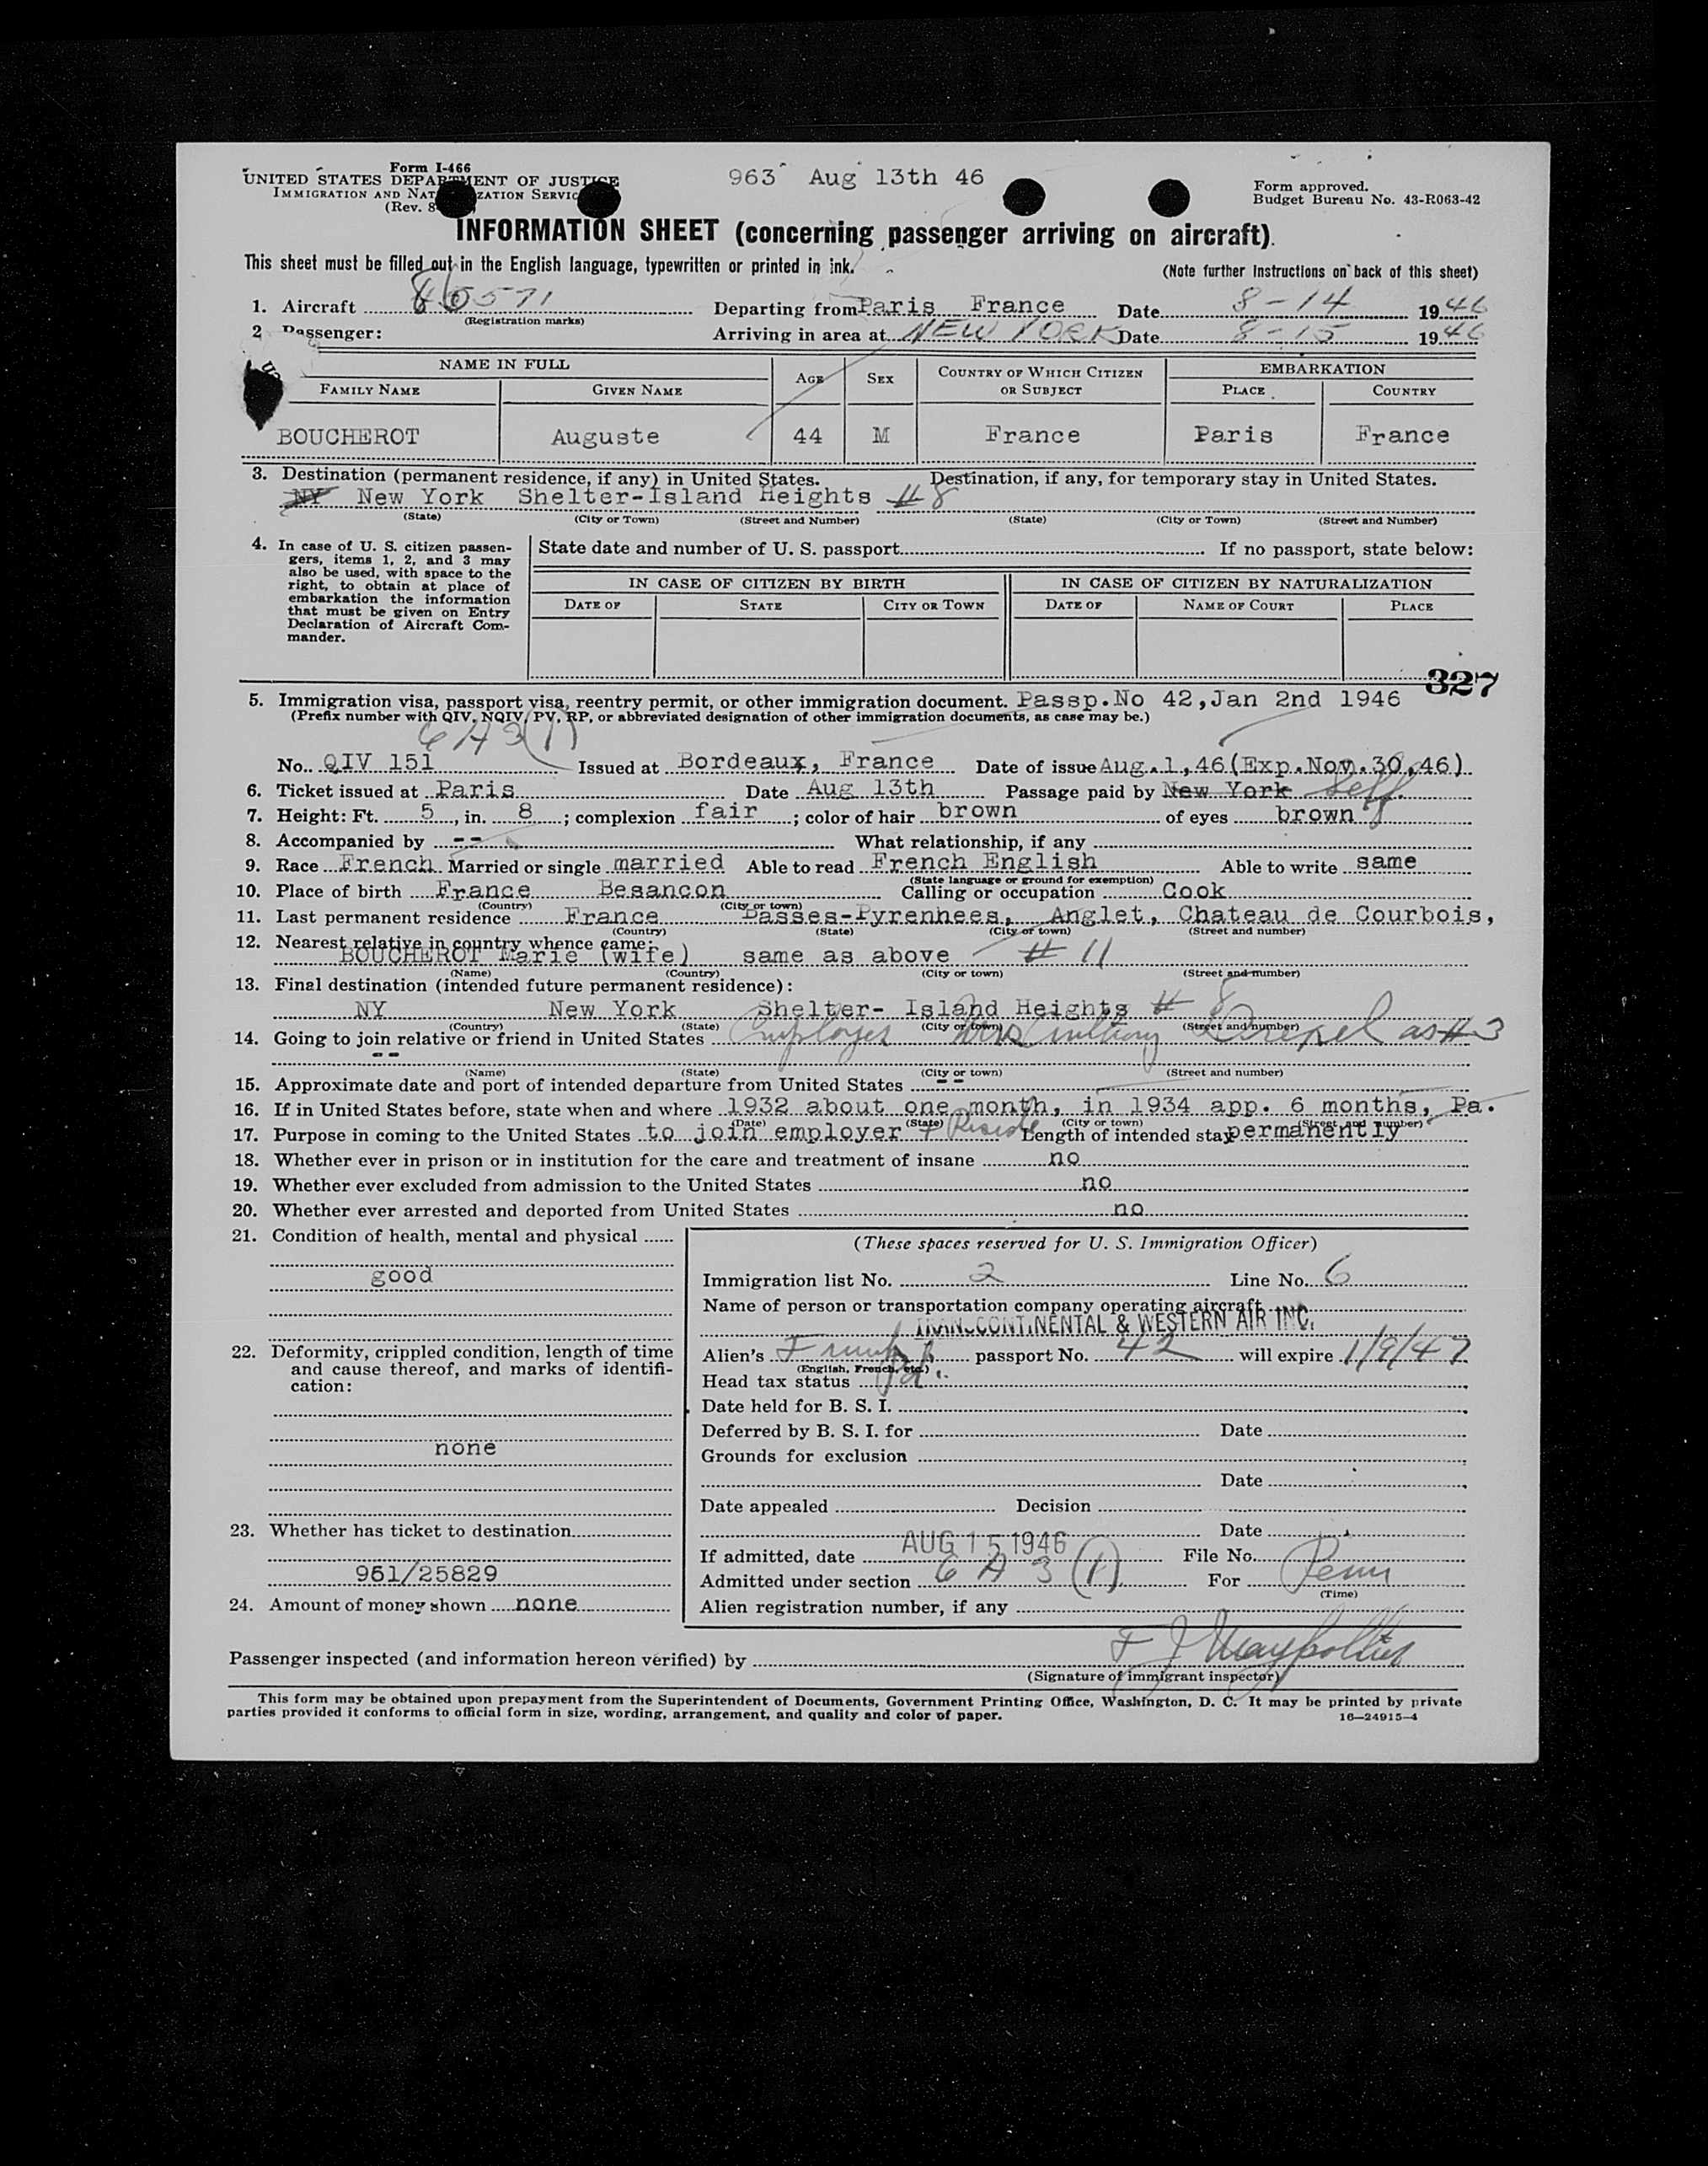 Form I-466
UNITED STATES DEPARTMENT OF JUSTICE
IMMIGRATION AND NAT ZATION SERVIC
(Rev. 8
963 Aug 13th 46
Form approved.
Budget Bureau No. 43-R063-42
INFORMATION SHEET (concerning passenger arriving on aircraft).
This sheet must be filled out in the English language, typewritten or printed in ink.
(Note further instructions on back of this sheet)
1. Aircraft 86571 Departing from Paris France Date 8-14 1946
(Registration marks)
2 Passenger: Arriving in area at NEW YORK Date 8-15 1946
NAME IN FULL AGE SEX COUNTRY OF WHICH CITIZEN OR SUBJECT EMBARKATION
FAMILY NAME GIVEN NAME PLACE COUNTRY
BOUCHEROT Auguste 44 M France Paris France
3. Destination (permanent residence, if any) in United States. Destination, if any, for temporary stay in United States.
NY New York Shelter-Island Heights # 8
(State) (City or Town) (Street and Number) (State) (City or Town) (Street and Number)
4. In case of U. S. citizen passen-
gers, items 1, 2, and 3 may
also be used, with space to the
right, to obtain at place of
embarkation the information
that must be given on Entry
Declaration of Aircraft Com-
mander.
State date and number of U. S. passport If no passport, state below:
IN CASE OF CITIZEN BY BIRTH IN CASE OF CITIZEN BY NATURALIZATION
DATE OF STATE CITY OR TOWN DATE OF NAME OF COURT PLACE
327
5. Immigration visa, passport visa, reentry permit, or other immigration document. Passp.No 42,Jan 2nd 1946
(Prefix number with QIV, NQIV, PV, RP, or abbreviated designation of other immigration documents, as case may be.)
6 A 3(1)
No. QIV 151 Issued at Bordeaux, France Date of issue Aug.1,46(Exp.Nov.30,46)
6. Ticket issued at Paris Date Aug 13th Passage paid by New York Self
7. Height: Ft. 5, in. 8; complexion fair; color of hair brown of eyes brown
8. Accompanied by -- What relationship, if any
9. Race French Married or single married Able to read French English Able to write same
(State language or ground for exemption)
10. Place of birth France Besancon Calling or occupation Cook
(Country) (City or town)
11. Last permanent residence France Basses-Pyrenhees, Anglet, Chateau de Courbois,
(Country) (State) (City or town) (Street and number)
12. Nearest relative in country whence came:
BOUCHEROT Marie (wife) same as above # 11
(Name) (Country) (City or town) (Street and number)
13. Final destination (intended future permanent residence):
NY New York Shelter- Island Heights # 8
(Country) (State) (City or town) (Street and number)
14. Going to join relative or friend in United States Employer Mrs Anthony Drexel as #3
--
(Name) (State) (City or town) (Street and number)
15. Approximate date and port of intended departure from United States --
16. If in United States before, state when and where 1932 about one month, in 1934 app. 6 months, Pa.
(Date) (State) (City or town) (Street and number)
17. Purpose in coming to the United States to join employer + Reside Length of intended stay permanently
18. Whether ever in prison or in institution for the care and treatment of insane no
19. Whether ever excluded from admission to the United States no
20. Whether ever arrested and deported from United States no
21. Condition of health, mental and physical
good
22. Deformity, crippled condition, length of time
and cause thereof, and marks of identifi-
cation:
none
23. Whether has ticket to destination
951/25829
24. Amount of money shown none
(These spaces reserved for U. S. Immigration Officer)
Immigration list No. 2 Line No. 6
Name of person or transportation company operating aircraft
TRANSCONTINENTAL & WESTERN AIR INC.
Alien's French passport No. 42 will expire 1/9/47
(English, French, etc.)
Head tax status Pd.
Date held for B. S. I.
Deferred by B. S. I. for Date
Grounds for exclusion
Date
Date appealed Decision
Date
If admitted, date AUG 15 1946 File No.
Admitted under section 6 A 3 (1) For Perm
(Time)
Alien registration number, if any
Passenger inspected (and information hereon verified) by F J
(Signature of immigrant inspector)
This form may be obtained upon prepayment from the Superintendent of Documents, Government Printing Office, Washington, D. C. It may be printed by private
parties provided it conforms to official form in size, wording, arrangement, and quality and color of paper.
16—24915-4